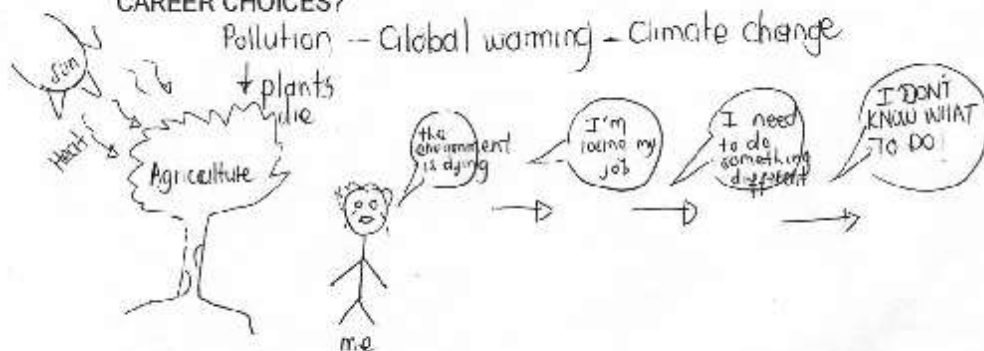 CAREER CHOICES?
Pollution -- Global warming - Climate change
Sun
plants
die
Heat
Agriculture
me
the
environment
is dying
I'm
my
job
I need
to do
something
different
I DON'T
KNOW WHAT
TO DO!